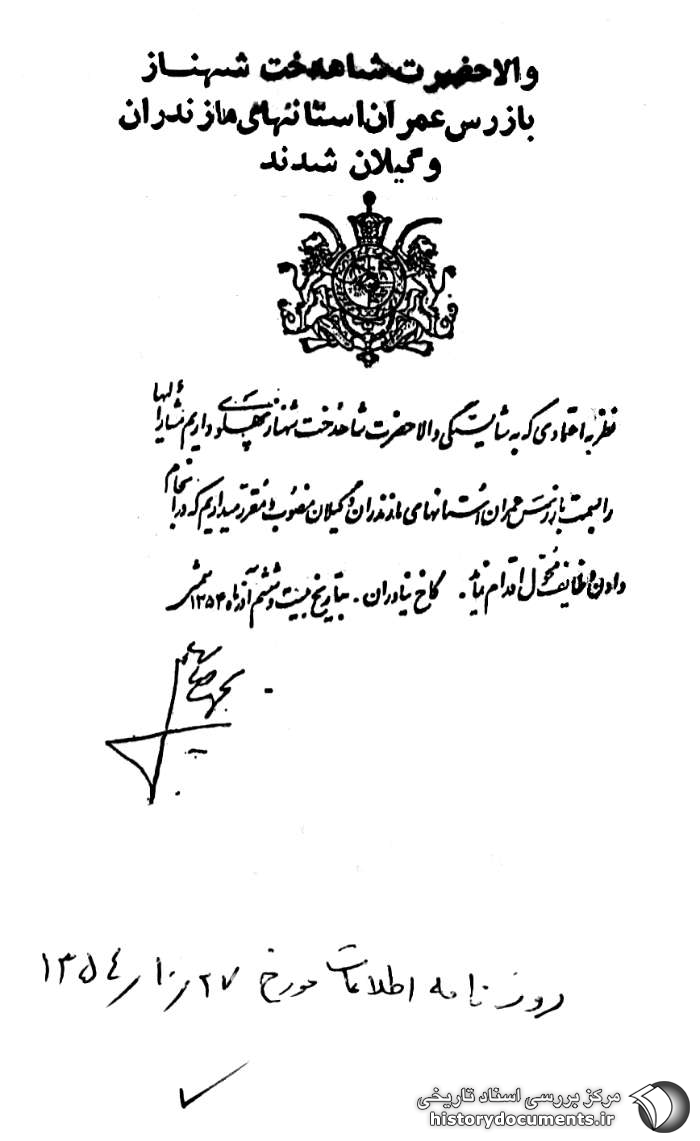 والاحضرت شاهدخت شهناز
بازرس عمران استانهای مازندران
و گیلان شدند
نظر به اعتمادی که به شایستگی والاحضرت شاهدخت شهناز پهلوی داریم مشارالیها
را بسمت بازرس عمران استانهای مازندران و گیلان منصوب و مقرر میداریم که در انجام
دادن وظایف محول اقدام نماید. کاخ نیاوران. بتاریخ بیست و ششم آذرماه ۱۳۵۴ شمسی
روزنامه اطلاعات مورخ ۲۷ر۱۰ر۱۳۵۴
مرکز بررسی اسناد تاریخی
historydocuments.ir